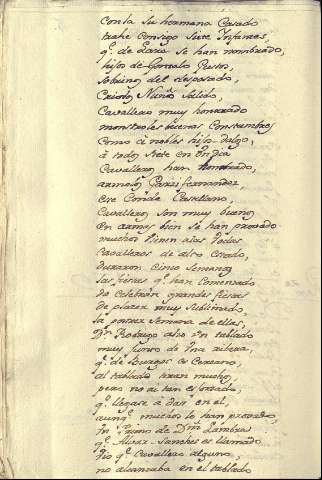 Con la Su hermana Casado
trahe consigo Siete Infantes,
qe. de Lara se han nombrado,
hijos de Gonzalo Gustos,
sobrinos del desposado,
Criolos Nuño Salido,
Cavallero muy honrrado
monstroles buenas Costumbres
Como a nobles hijos dalgo,
a todos Siete en Un dia
Cavalleros han
armolos Garzi fernandez,
ese Conde Castellano,
Cavalleros son muy buenos
en armas bien se han provado
muchos vienen a las vodas
Cavalleros de alto estado,
duraron Cinco Semanas
las fiestas qe. han Comenzado
do celebran grandes fiestas
de plazer muy Sublimado,
la postrer Semana de ellas,
Dn. Rodrigo alzo Un tablado
muy junto de Una ribera
qe. de Burgos es Cercano,
al tablado tiran muchos,
pero no ai tan esforzado,
qe. llegase a dar en el,
aunqe. muchos lo han provado,
Un Primo de Dña. Lambra
qe. Alvar Sanchez es llamado
Vio qe. Cavallero alguno,
no alcanzaba en el tablado